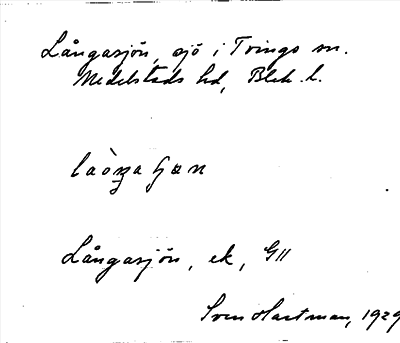 Långasjön, sjö i Tvings sn.
Medelstads hd, Blek. l.
Långasjön, ek, G11
Sven Hartman, 1929